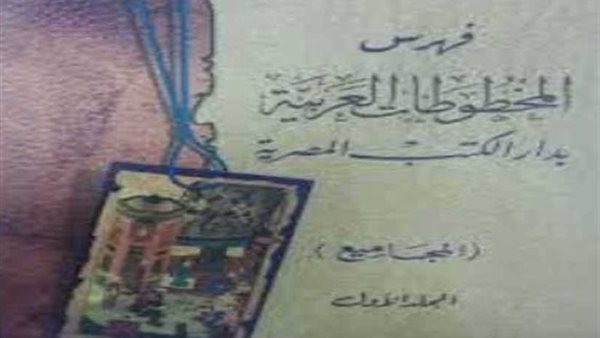 فهرس
المخطوطات العربية
بدار الكتب المصرية
(المجاميع)
المجلد الأول